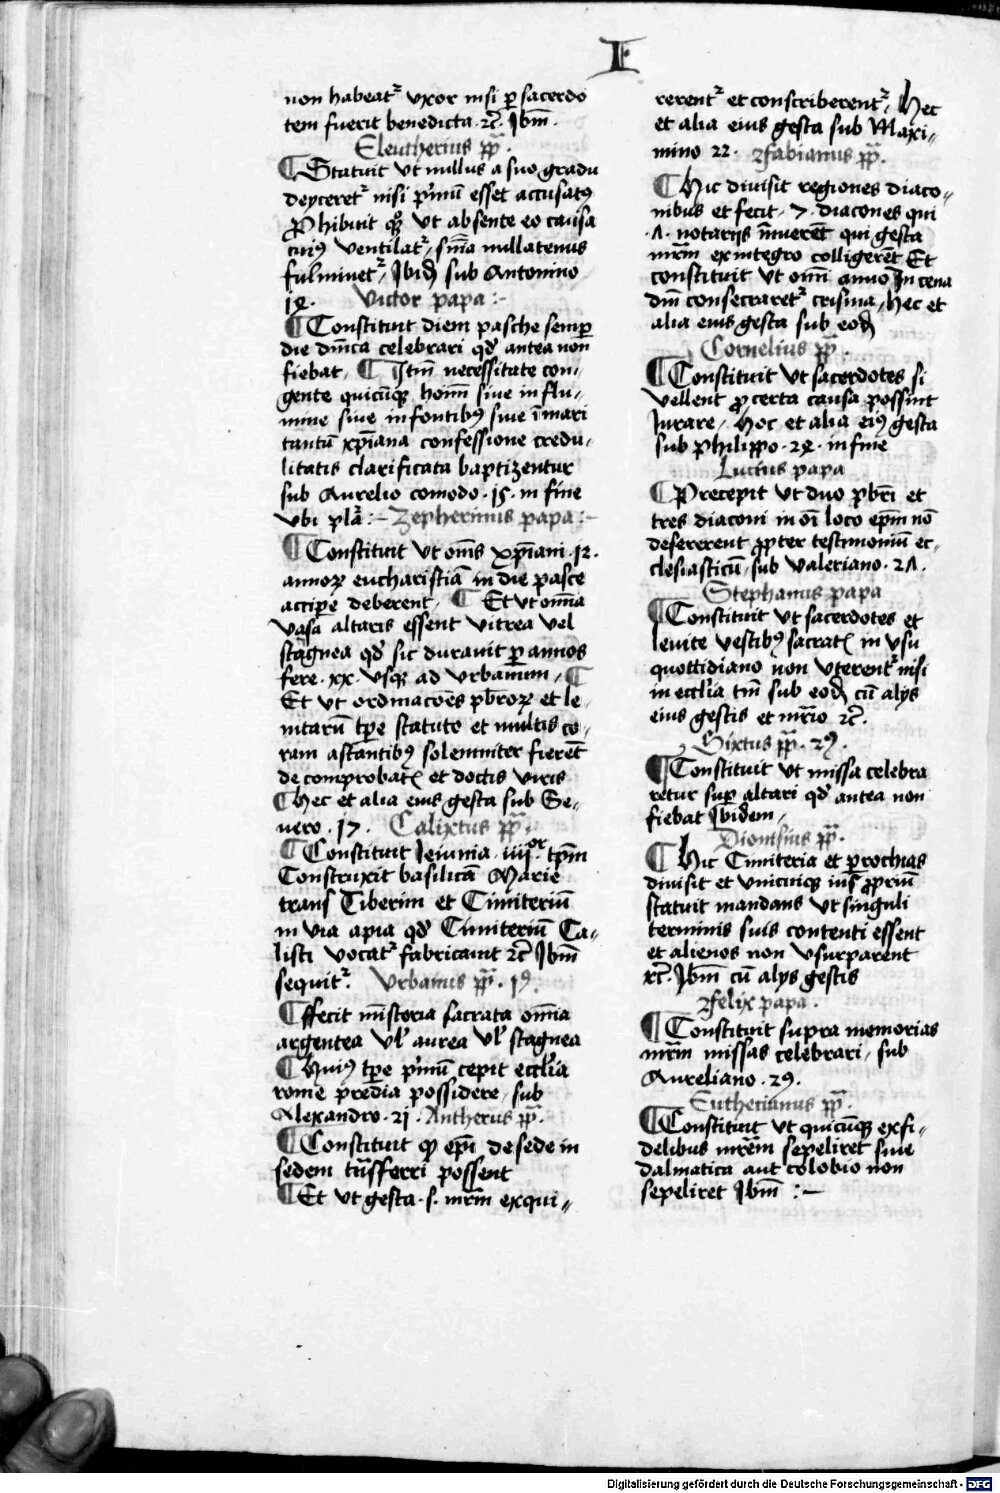 F
non habeatᷣ vxor nisi ꝑ sacerdo
tem fuerit benedicta ⁊cꝰ. Jbm̄.
Eleutherius pp̄.
¶ Statuit vt nullus a suo gradu
deyceretᷣ nisi pͥmū esset accusatꝰ
ꝓhibuit qͦꝫ vt absente eo causa
cuiꝰ ventilatᷣ, sn̄ia nullatenus
fulminetᷣ, Jbid̄ sub Antonino
18. Victor papa :-
¶ Constituit diem pasche semꝑ
die dm̄ica celebrari qd̄ antea non
fiebat, ¶ Jtm̄ necessitate con-
gente quicūqꝫ homī siue in flu-
mine siue in fontibꝰ siue ī mari
tantū xp̄iana confessione credu-
litatis clarificata baptizentur
sub Aurelio comodo . 15 . in fine
vbi pla :- Zepherinus papa :-
¶ Constituit vt om̄s xp̄iani . 12 .
annoꝝ eucharistiā in die pasce
accipe deberent, ¶ Et vt om̄ia
vasa altaris essent vitrea vel
stagnea qd̄ sic durauit ꝑ annos
fere . xx . vsqꝫ ad vrbanum, ¶
Et vt ordinacōes pb̄roꝝ et le-
uitarū tp̄e statuto et multis co-
ram astantibꝰ solenniter fierēt
de comprobatꝭ et doctis viris
¶ Hec et alia eius gesta sub Se-
uero . 17 . Calixtus pp̄.
¶ Constituit Jeiunia . iiiiᵒʳ. tp̄m
Construxit basilicā Marie
trans Tiberim et Cimiteriū
in via apia qd̄ Cimiteriū Ca-
listi vocatᷣ fabricauit ⁊cꝰ Jbm̄
sequitᷣ. Vrbanus pp̄ . 19.
¶ ffecit mīsteria sacrata om̄ia
argentea vl̄ aurea vl̄ stagnea
¶ Huiꝰ tp̄e pͥmū cepit eccl̄ia
rome predia possidere, sub
Alexandro . 21 . Antherus pp̄.
¶ Constituit ꝙ ep̄i de sede in
sedem trāsferri possent
¶ Et vt gesta . s . mr̄m exqui-
rerentᷣ et conscriberentᷣ, Hec
et alia eius gesta sub Maxi-
mino 22. Fabianus pp̄.
¶ Hic diuisit regiones diaco-
nibus et fecit . 7 . diacones qui
.Λ. notarijs īnuerēt qui gesta
mr̄m ex integro colligerēt Et
constituit vt omī anno Jn cena
dm̄ consecraretᷣ crisma, Hec et
alia eius gesta sub eod̄
Cornelius pp̄.
¶ Constituit vt sacerdotes si
vellent ꝓ certa causa possint
Jurare, Hec et alia eiꝰ gesta
sub philippo . 28 . in fine
Lucius papa
¶ Precepit vt duo pb̄ri et
tres diaconi in oī loco ep̄m nō
desererent ꝓpter testimonium ec-
clesiasticū, sub valeriano . 2Λ .
Stephanus papa
¶ Constituit vt sacerdotes et
leuite vestibꝰ sacratꝭ in vsu
quottidiano non vterentᷣ nisi
in eccl̄ia tm̄ sub eod̄ cū alijs
eius gestis et mr̄io ⁊cꝰ.
Sixtus pp̄ . 2⁊.
¶ Constituit vt missa celebra
retur suꝑ altari qd̄ antea non
fiebat Jbidem,
Dionisius pp̄.
¶ Hic Cimiteria et ꝑrochias
diuisit et vnicuiqꝫ ius ꝓpriū
statuit mandans vt singuli
terminis suis contenti essent
et alienos non vsurparent
⁊cꝰ. Jbm̄ cū alijs gestis
Felix papa .
¶ Constituit supra memorias
mr̄m missas celebrari, sub
Aureliano . 29.
Euthecianus pp̄.
¶ Constituit vt quicūqꝫ ex fi-
delibus mr̄em sepeliret siue
dalmatica aut colobio non
sepeliret Jbm̄ :-
Digitalisierung gefördert durch die Deutsche Forschungsgemeinschaft - DFG